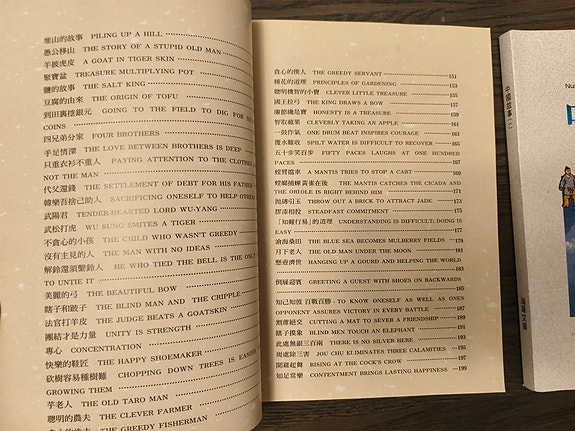 堆山的故事 PILING UP A HILL
愚公移山 THE STORY OF A STUPID OLD MAN
羊披虎皮 A GOAT IN TIGER SKIN
聚寶盆 TREASURE MULTIPLYING POT
鹽的故事 THE SALT KING
豆腐的由來 THE ORIGIN OF TOFU
到田裏挖銀元 GOING TO THE FIELD TO DIG FOR
COINS
四兄弟分家 FOUR BROTHERS
手足情深 THE LOVE BETWEEN BROTHERS IS DEEP
只重衣衫不重人 PAYING ATTENTION TO THE CLOTHES
NOT THE MAN
代父還錢 THE SETTLEMENT OF DEBT FOR HIS FATHER
韓樂吾捨己助人 SACRIFICING ONESELF TO HELP OTHERS
武陽君 TENDER-HEARTED LORD WU-YANG
武松打虎 WU SUNG SMITES A TIGER
不貪心的小孩 THE CHILD WHO WASN'T GREEDY
沒有主見的人 THE MAN WITH NO IDEAS
解鈴還須繫鈴人 HE WHO TIED THE BELL IS THE ONLY
TO UNTIE IT
美麗的弓 THE BEAUTIFUL BOW
瞎子和跛子 THE BLIND MAN AND THE CRIPPLE
法官打羊皮 THE JUDGE BEATS A GOATSKIN
團結才是力量 UNITY IS STRENGTH
專心 CONCENTRATION
快樂的鞋匠 THE HAPPY SHOEMAKER
砍樹容易種樹難 CHOPPING DOWN TREES IS EASIER
GROWING THEM
芋老人 THE OLD TARO MAN
聰明的農夫 THE CLEVER FARMER
THE GREEDY FISHERMAN
貪心的僕人 THE GREEDY SERVANT 151
種花的道理 PRINCIPLES OF GARDENING 155
聰明機智的小寶 CLEVER LITTLE TREASURE 157
國王拉弓 THE KING DRAWS A BOW 157
廉節總是寶 HONESTY IS A TREASURE 159
智取蘋果 CLEVERLY TAKING AN APPLE 161
一鼓作氣 ONE DRUM BEAT INSPIRES COURAGE 163
覆水難收 SPILT WATER IS DIFFICULT TO RECOVER 165
五十步笑百步 FIFTY PACES LAUGHS AT ONE HUNDRED
PACES 167
螳臂擋車 A MANTIS TRIES TO STOP A CART 169
螳螂捕蟬 黃雀在後 THE MANTIS CATCHES THE CICADA AND
THE ORIOLE IS RIGHT BEHIND HIM 171
拋磚引玉 THROW OUT A BRICK TO ATTRACT JADE 173
膠漆相投 STEADFAST COMMITMENT 175
「知難行易」的道理 UNDERSTANDING IS DIFFICULT; DOING IS
EASY 177
滄海桑田 THE BLUE SEA BECOMES MULBERRY FIELDS 179
月下老人 THE OLD MAN UNDER THE MOON 181
懸壺濟世 HANGING UP A GOURD AND HELPING THE WORLD
183
倒屣迎賓 GREETING A GUEST WITH SHOES ON BACKWARDS
185
知己知彼 百戰百勝 TO KNOW ONESELF AS WELL AS ONES
OPPONENT ASSURES VICTORY IN EVERY BATTLE 187
割蓆絕交 CUTTING A MAT TO SEVER A FRIENDSHIP 189
瞎子摸象 BLIND MEN TOUCH AN ELEPHANT 191
此處無銀三百兩 THERE IS NO SILVER HERE 193
周處除三害 JOU CHU ELIMINATES THREE CALAMITIES 195
聞雞起舞 RISING AT THE COCK'S CROW 197
知足常樂 CONTENTMENT BRINGS LASTING HAPPINESS 199
中國故事(二)
海星文庫